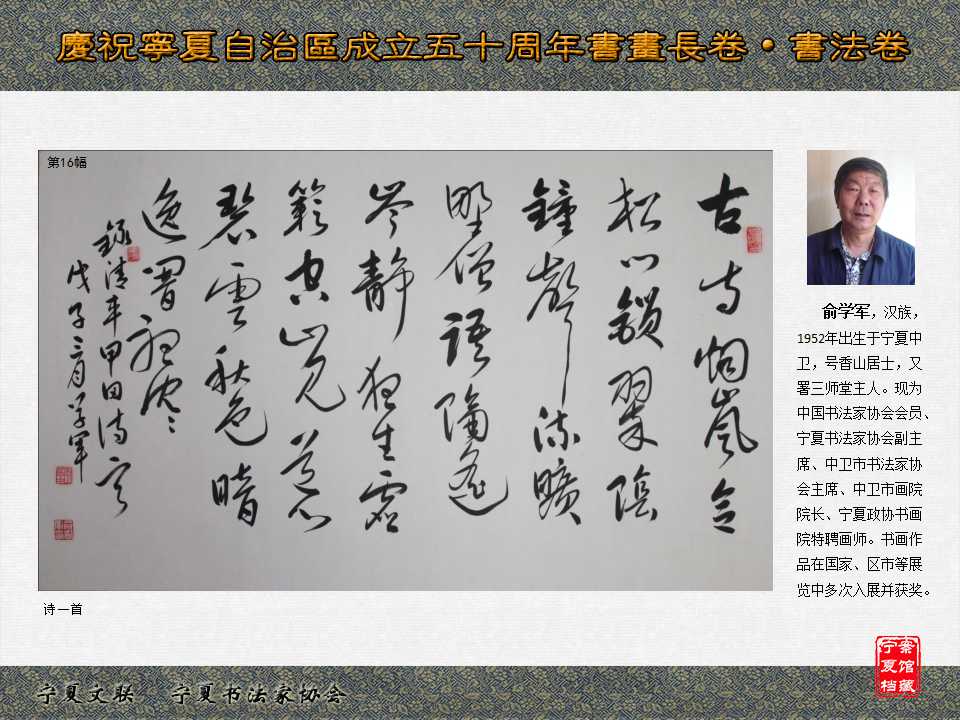 慶祝寧夏自治區成立五十周年書畫長卷•書法卷
第16幅
古寺烟嵐合
松門鎖翠陰
鐘聲流曠
野僧語隔遙
岑靜夜生虛
籟空山見道心
碧雲秋色暗
逸響初沈沈
錄清車甲田詩意
戊子三月學軍
诗一首
俞学军，汉族，
1952年出生于宁夏中
卫，号香山居士，又
署三师堂主人。现为
中国书法家协会会员、
宁夏书法家协会副主
席、中卫市书法家协
会主席、中卫市画院
院长、宁夏政协书画
院特聘画师。书画作
品在国家、区市等展
览中多次入展并获奖。
宁夏文联 宁夏书法家协会
宁夏档案馆藏